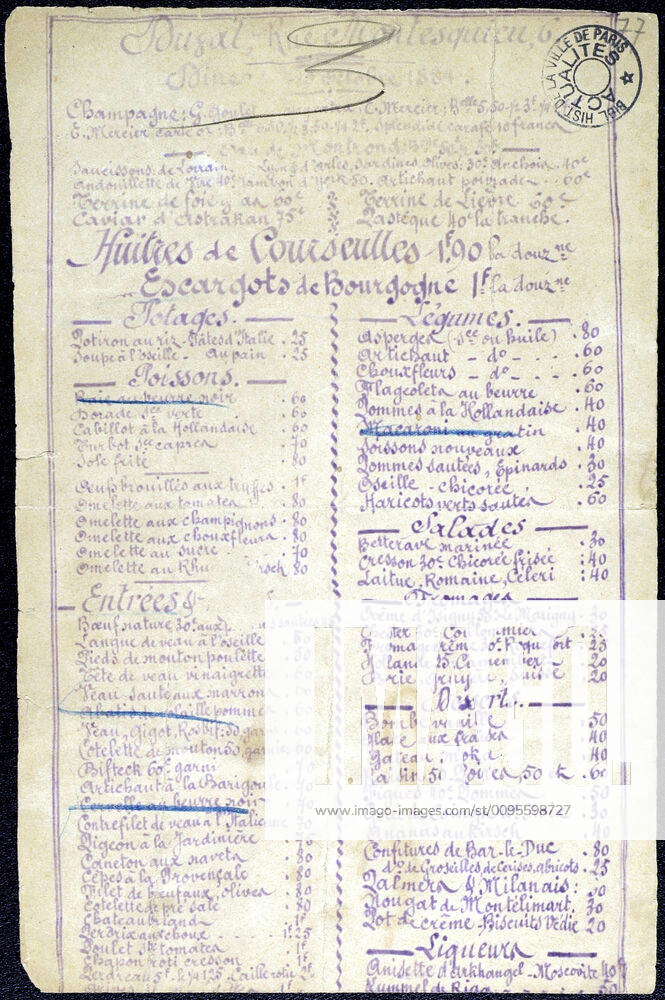 77
Duval - Rue Montesquieu, 6
Dîner 1881.
BIBL. HIST. DE LA VILLE DE PARIS
ACTUALITES
Champagne: G. Goulet E. Mercier: Blle 5.50
E. Mercier carte or: splendide carafe 10 francs
Saucissons: de Lorraine Lyon d'Arles, Sardines, Olives: 30c Anchois. 40c
Andouillette de Vire 40c Jambon d'York 50. Artichaut poivrade 60c
Terrine de foie gras 60c Terrine de Lièvre 60c
Caviar d'Astrakan 75c Pastèque 40c la tranche.
Huîtres de Courseulles 1f.90 la douzne
Escargots de Bourgogne 1f la douzne
Potages.
Potiron au riz. Pâtes d'Italie . 25
Soupe à l'oseille. Au pain . 25
Poissons.
Raie au beurre noir . 60
Dorade sce verte . 60
Cabillot à la Hollandaise . 60
Turbot sce capres . 70
Sole frite . 80
Œufs brouillés aux truffes . 1f
Omelette aux tomates . 80
Omelette aux champignons . 80
Omelette aux chouxfleurs . 80
Omelette au sucre . 70
Omelette au Rhum Kirsch 80
Entrées &
Bœuf nature 30c aux
Langue de veau à l'oseille
Pieds de mouton poulette
Tête de veau vinaigrette
Veau sauté aux marrons
pommes
Veau, Gigot, Rosbif, 50 garni
Cotelette de mouton 50 garnie
Bifteck 60c garni
Artichaut à la Barigoule
Cervelle au beurre noir
Contrefilet de veau à l'Italienne
Pigeon à la Jardinière
Caneton aux navets . 80
Cèpes à la Provençale . 80
Filet de bœuf aux olives . 80
Cotelette de pré salé . 80
Chateaubriand . 1f
Perdrix aux choux . 1f25
Poulet sce tomates
Chapon rôti cresson . 1f
Perdreau 5f. le 1/4 125. Caille rôtie 2f
Légumes.
Asperges (sce ou huile) . 80
Artichaut - do - . 60
Chouxfleurs - do - . 60
Flageolets au beurre . 60
Pommes à la Hollandaise . 40
Macaroni au gratin . 40
Poissons nouveaux . 40
Pommes sautées, Epinards . 30
Oseille - chicorée . 25
Haricots verts sautés . 60
Salades
Betterave marinée . 30
Cresson 30c Chicorée frisée : 40
Laitue, Romaine, Céleri : 40
Fromages
Crème d'Isigny Marigny . 30
Coulommiers . 25
crème 30c Roquefort . 25
Hollande 25 Camembert . 20
Brie gruyère, suisse . 20
Desserts.
Bombe vanille . 50
Glace aux fraises . 40
Gateau moka . 40
50 Poires, 50 . 60
Figues 10c Pommes . 50
Ananas au kirsch . 40
Confitures de Bar-le-Duc . 80
do de Groseilles de Cerises, abricots . 25
Palmers & Milanais :
Nougat de Montélimart . 30
Pot de crème - Biscuits Védie 20
Liqueurs
Anisette d'Arkhangel - Moscovite 40
Kummel de Riga
IMAGO
www.imago-images.com/st/0095598727